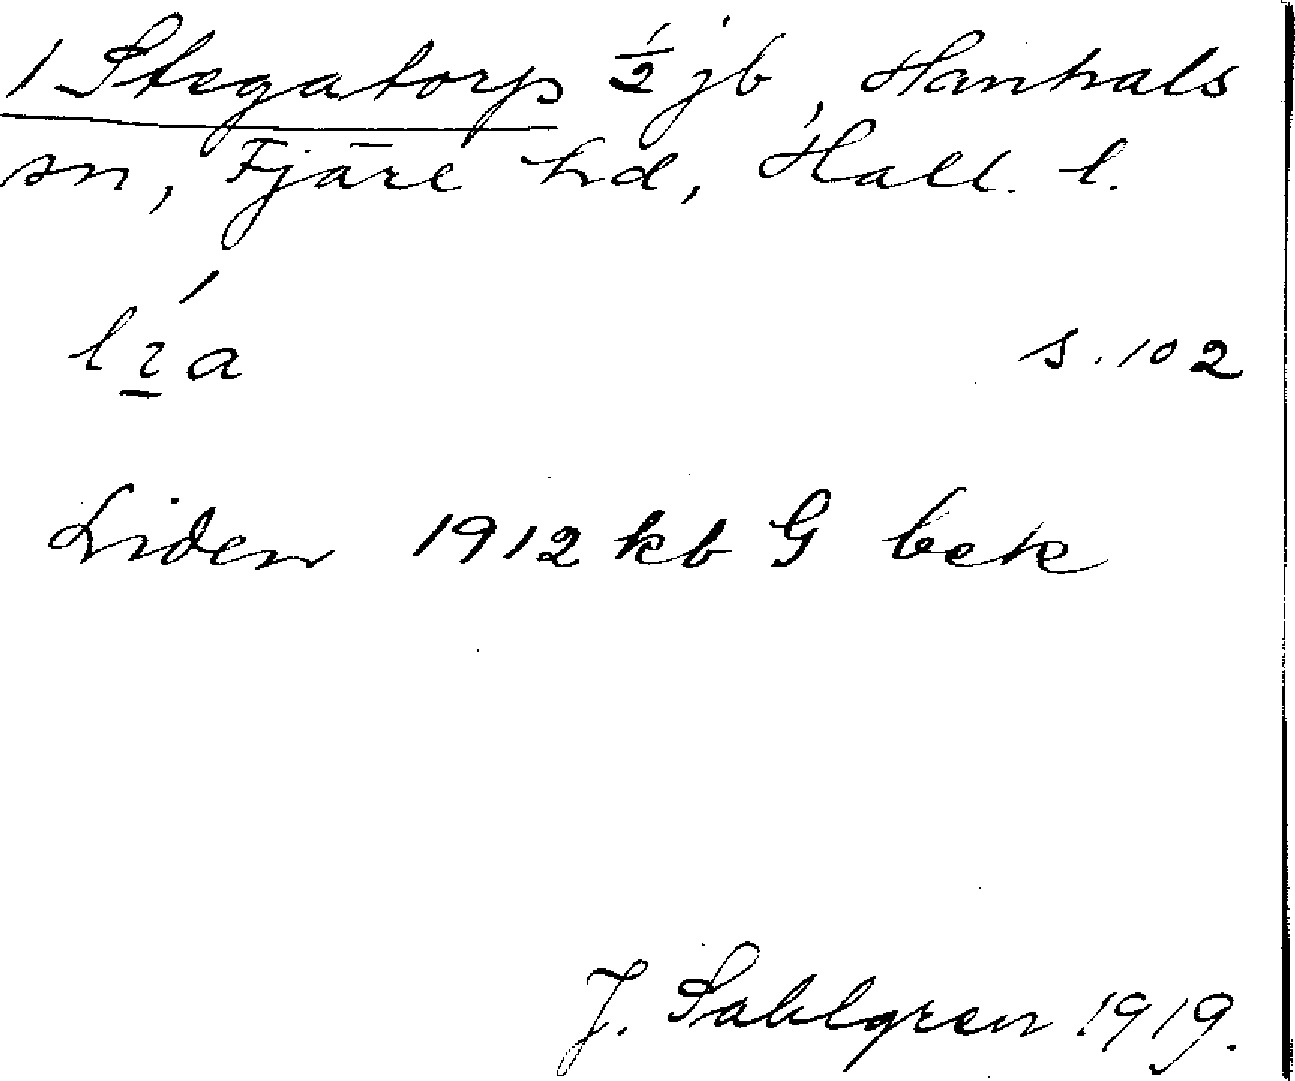 1 Stegatorp ½ jb, Hanhals
sn, Fjäre hd, Hall. l.
s. 102
Liden 1912 kb G bek
J. Sahlgren 1919.